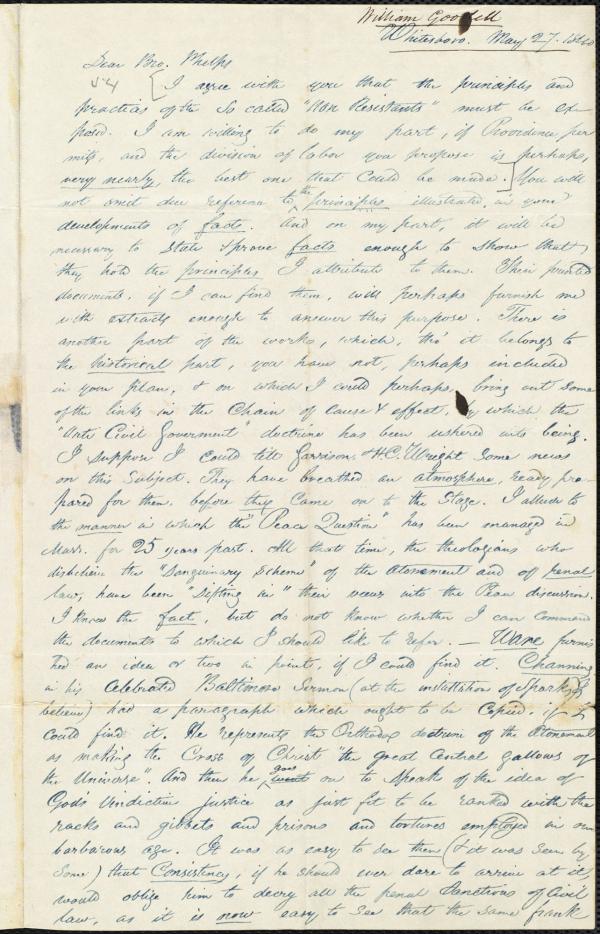 William Goodell
Whitesboro. May 27. 1840
Dear Bro. Phelps
I agree with you that the principles and
practices of the so called "Non Resistants" must be ex-
posed. I am willing to do my part, if Providence per
mits, and the division of labor you propose is perhaps,
very nearly, the best one that could be made. You will
not omit due reference to the principles illustrated in your
developments of facts. And on my part, it will be
necessary to state & prove facts enough to show that
they hold the principles I attribute to them. Their printed
documents, if I can find them, will perhaps furnish me
with extracts enough to answer this purpose. There is
another part of the works, which, tho' it belongs to
the historical part, you have not, perhaps included
in your plan, & on which I could perhaps, bring out some
of the links in the chain of cause & effect, by which the
"Anti Civil Goverment" doctrine has been ushered into being.
I suppose I could tell Garrison & H.C. Wright some news
on this subject. They have breathed an atmosphere, ready pre-
pared for them, before they came on to the stage. I allude to
the manner in which the "Peace Question" has been managed in
Mass. for 25 years past. All that time, the theologians who
disbelieve the "Sanguinary Scheme" of the Atonement and of penal
law, have been "sifting in" their views into the Peace discussion.
I know the fact, but do not know whether I can command
the documents to which I should like to refer. — Ware furnis
hed an idea or two in point, if I could find it. Channing
in his celebrated Baltimore Sermon (at the installation of Sparks I
believe) had a paragraph which ought to be copied, if I
could find it. He represents the Orthodox doctrine of the Atonement
as making the Cross of Christ "the great central gallows of
the Universe" And then he goes on to speak of the idea of
Gods vindictive justice as just fit to be ranked with the
racks and gibbets and prisons and tortures employed in our
barbarous age. It was as easy to see then (& it was seen by
some) that Consistency, if he should ever dare to arrive at it,
would oblige him to decry all the penal sanctions of Civil
law, as it is now easy to see that the same frank